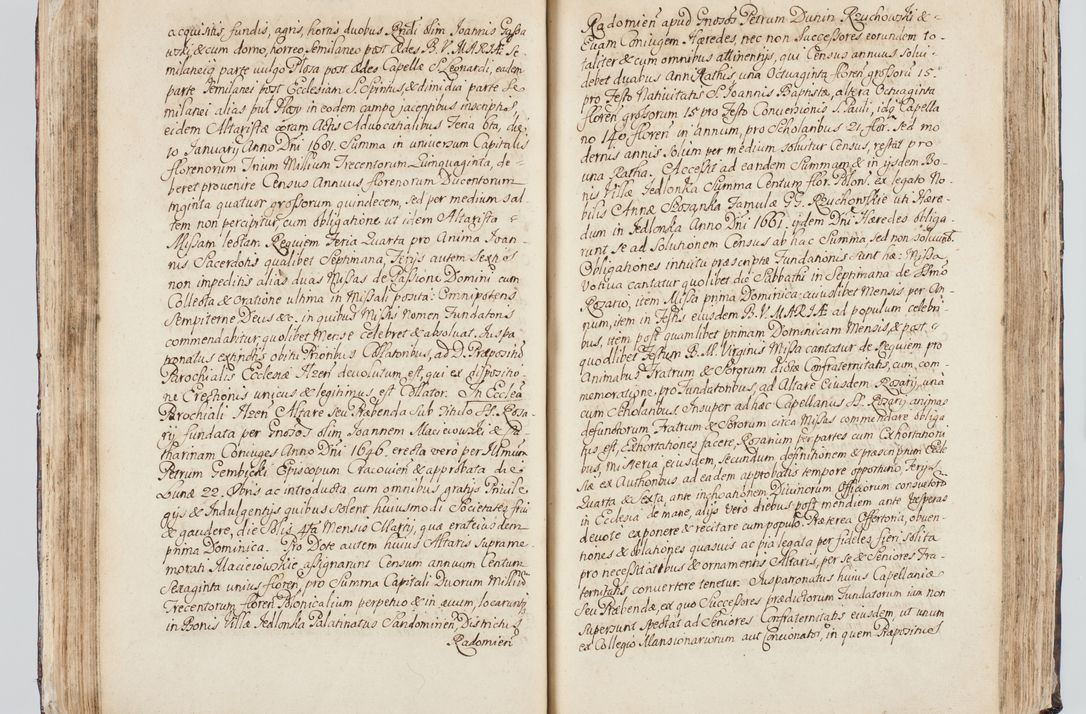 acquisitis, fundis, agris, hortis duobus Rndi olim Joannis
wski, & cum domo, horreo Semilaneo post Ædes B. V. MARIÆ Se
milaneis parte vulgo Płosa post Ædes Capellæ S. Leonardi, eadem
parte Semilanei post Ecclesiam S. Spiritus, & dimidia parte Se
milanei alias puł in eodem campo jacentibus inscriptis,
eidem Altaristæ coram Actis Advocatialibus Feria 6ta, die
10 January Anno Dni 1681. Summa in universum Capitalis
florenorum Trium Millium Trecentorum Quinquaginta, de-
beret provenire Census Annuus florenorum Ducentorum
triginta quatuor grossorum quindecem, sed per medium sal
tem non percipitur, cum obligatione ut idem Altarista
Missam lectam Requiem Feria Quarta pro Anima Joan-
nis Sacerdotis qualibet Septimana Ferijs autem Sextis
non impeditis alias duas Missas de Passione Domini cum
Collecta & Oratione ultima in Missali posita: Omnipotens
Sempiterne Deus &c. in quibus Missis Nomen Fundatoris
commendabitur quolibet Mense celebret & absolvat. Juspa
tronatus extinctis obitu Prioribus Collatoribus, ad D. Præpositum
Parochialis Ecclesiæ Ilzen devolutum est, qui ex dispositio-
ne Erectionis unicus & legitimus est Collator. In Ecclea
Parochiali Ilzen Altare seu Præbenda Sub Titulo SS. Rosa-
rij fundata per Gnosos olim Joannem Macieiowski & Ca-
tharinam Coniuges Anno Dni 1646. erecta vero per Illmum
Petrum Gembicki Episcopum Cracovien & approbata die
Lunæ 22. Obris ac introducta cum omnibus gratijs Privile
gijs & Indulgentijs quibus Solent huiusmodi Societates frui
& gaudere, die Solis 4ta Mensis Martij, qua erat eiusdem
prima Dominica. Pro Dote autem huius Altaris Suprame-
morati Macieiowskie assignarunt Censum annuum Centum
Sexaginta unius floren, pro Summa Capitali Duorum millium
Trecentorum floren Polonicalium perpetuo & in ævum, locarunt
in Bonis Villæ Jedlonka Palatinatus Sandomirien, Districtus
Radomien
Radomien apud Gnosos Petrum Dunin Rzuchowski &
Evam Coniugem Hæredes, nec non Successores eorundem to-
taliter & cum omnibus attinentijs, qui Census annuus solui
debet duabus Anni Rathis, una Octuaginta floren grossorum 15.
pro Festo Nativitatis S. Joannis Baptistæ, altera Octuaginta
floren grossorum 15 pro Festo Conversionis S. Pauli, idq Capella
no 140 floren in annum, pro Scholaribus 21. flor. Sed mo
dernis annis Solum per medium solvitur Census, restat pro
una Ratha. Accessit ad eandem Summam & in ijsdem Bo-
nis Villæ Jedlonka Summa Centum flor. Polon. ex legato No-
bilis Annæ Bozanka Famulæ GG. Rzuchowskie uti Hære-
dum in Jedlonka Anno Dni 1661. ijdem Dni Hæredes obliga-
runt se ad Solutionem Census ab hac Summa, sed non solvunt.
Obligationes intuitu præscriptæ Fundationis Sunt hæ: Missa
Votiva cantatur quolibet die Sabbathi in Septimana de SSmo
Rozario, item Missa prima Dominica cuiuslibet Mensis per An-
num, item in Festis eiusdem B. V. MARIÆ ad populum celebri
bus, item post quamlibet primam Dominicam Mensis, & post
quodlibet Festum B. M. Virginis Missa cantatur de Requiem pro
Animabus Fratrum & Sororum dictæ Confraternitatis, cum com-
memoratione pro Fundatoribus, ad Altare Eiusdem Rozarij, una
cum Scholaribus Insuper ad hac Capellanus SS. Rozarij animas
defunctorum Fratrum & Sororum circa Missas commendare obliga
tus est, Exhortationes facere, Rosarium per partes cum Exhortationi
bus, Misteria eiusdem, secundum definitionem & præscriptum Ecle
siæ ex Authoribus ad eadem approbatis tempore opportuno, Ferijs
Quarta & Sexta, ante inchoationem Divinorum Officiorum consuetorum
in Ecclesia de mane, alijs vero diebus post meridiem ante Vesperas
devote exponere & recitare cum populo. Præterea Offertoria, obven-
tiones & oblationes quasvis ac pia legata per fideles fieri solita
pro necessitatibus & ornamentis Altaris, per se & Seniores Fra-
ternitatis convertere tenetur. Juspatronatus huius Capellaniæ
Seu Præbendæ, ex quo Successores prædictorum Fundatorum iam non
supersunt Spectat ad Seniores Confraternitatis eiusdem, ut unum
ex Collegio Mansionariorum aut Concionator, in quem Præpositus